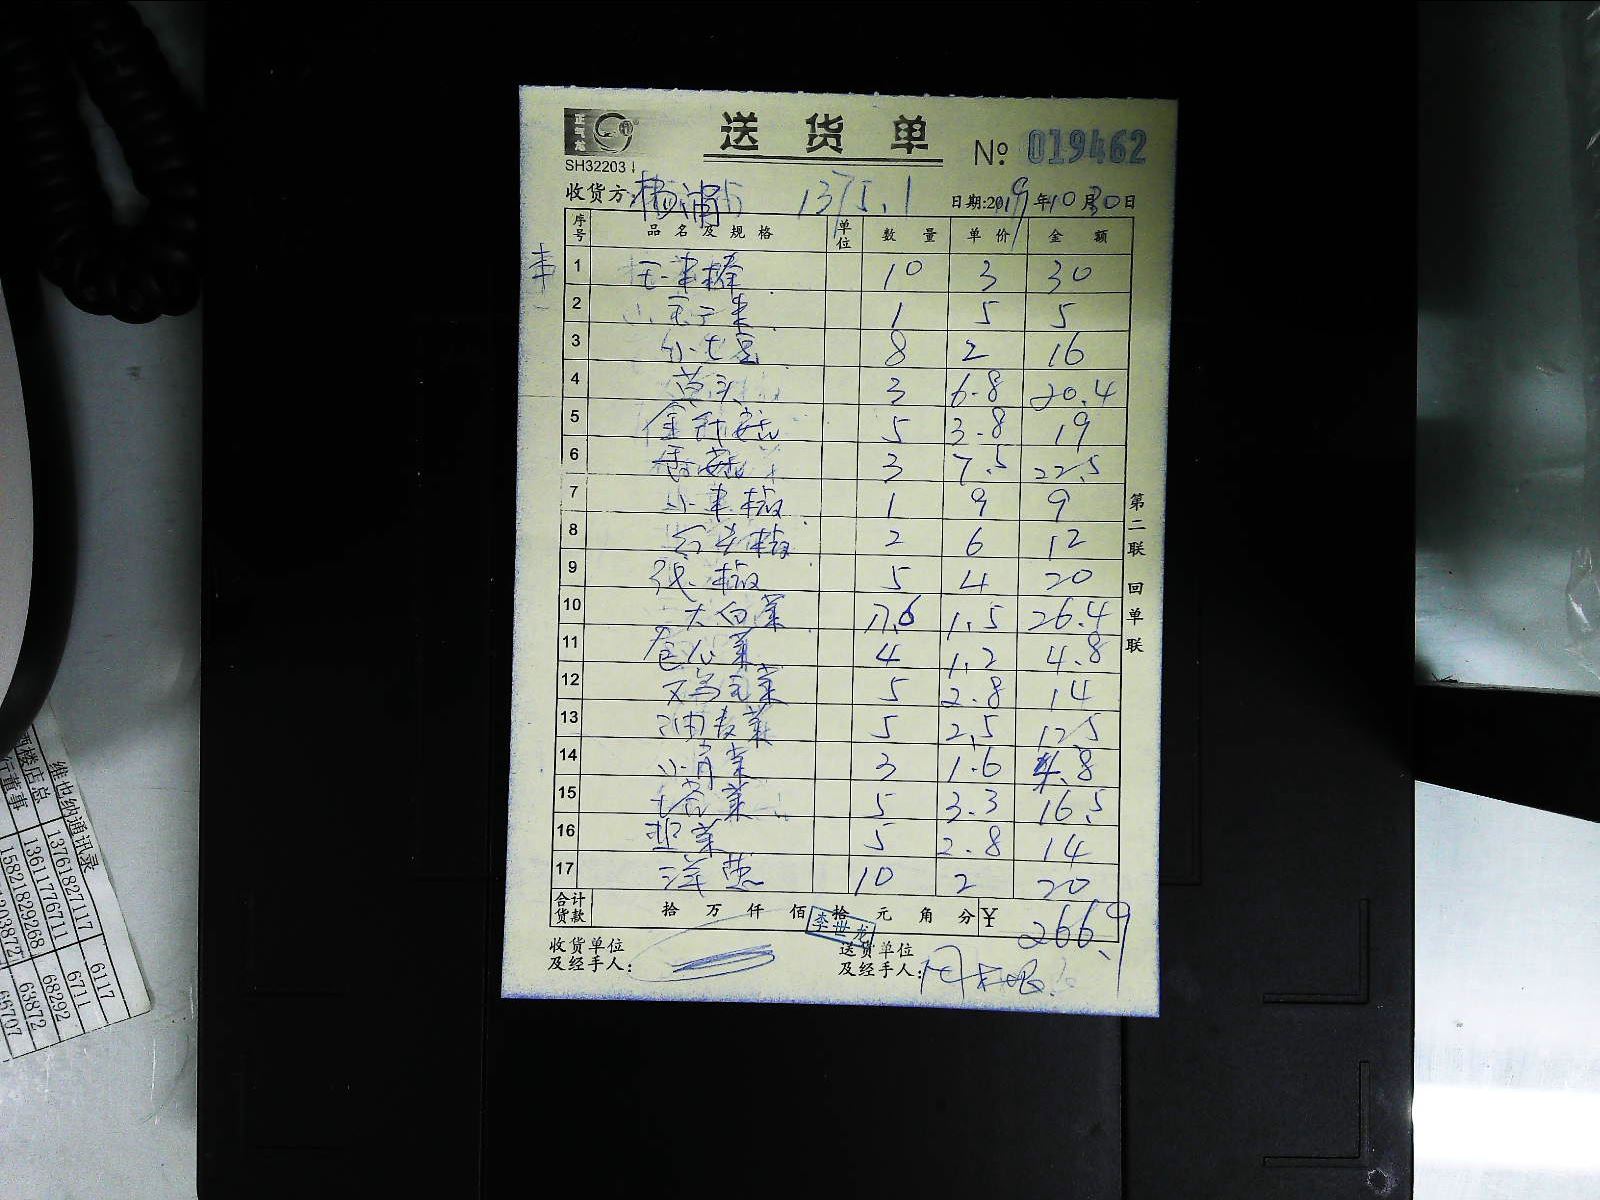 正气龙
送货单
№ 019462
SH32203
收货方: 杨浦 1375.1 日期:2019年10月30日
序号 品名及规格 单位 数量 单价 金额
1 10 3 30
2 1 5 5
3 小土豆 8 2 16
4 草头 3 6.8 20.4
5 金针菇 5 3.8 19
6 香菇 3 7.5 22.5
7 小米椒 1 9 9
8 2 6 12
9 椒 5 4 20
10 大白菜 17.6 1.5 26.4
11 包心菜 4 1.2 4.8
12 5 2.8 14
13 油麦菜 5 2.5 12.5
14 小青菜 3 1.6 4.8
15 菜 5 3.3 16.5
16 韭菜 5 2.8 14
17 洋葱 10 2 20
合计货款 拾 万 仟 佰 拾 元 角 分 ¥ 266.9
李世龙
收货单位及经手人:
送货单位及经手人:
第二联 回单联
维也纳通讯录
酒楼店总 13761827117 6117
行董事 13611776711 6711
15821829268 68292
63872
66707